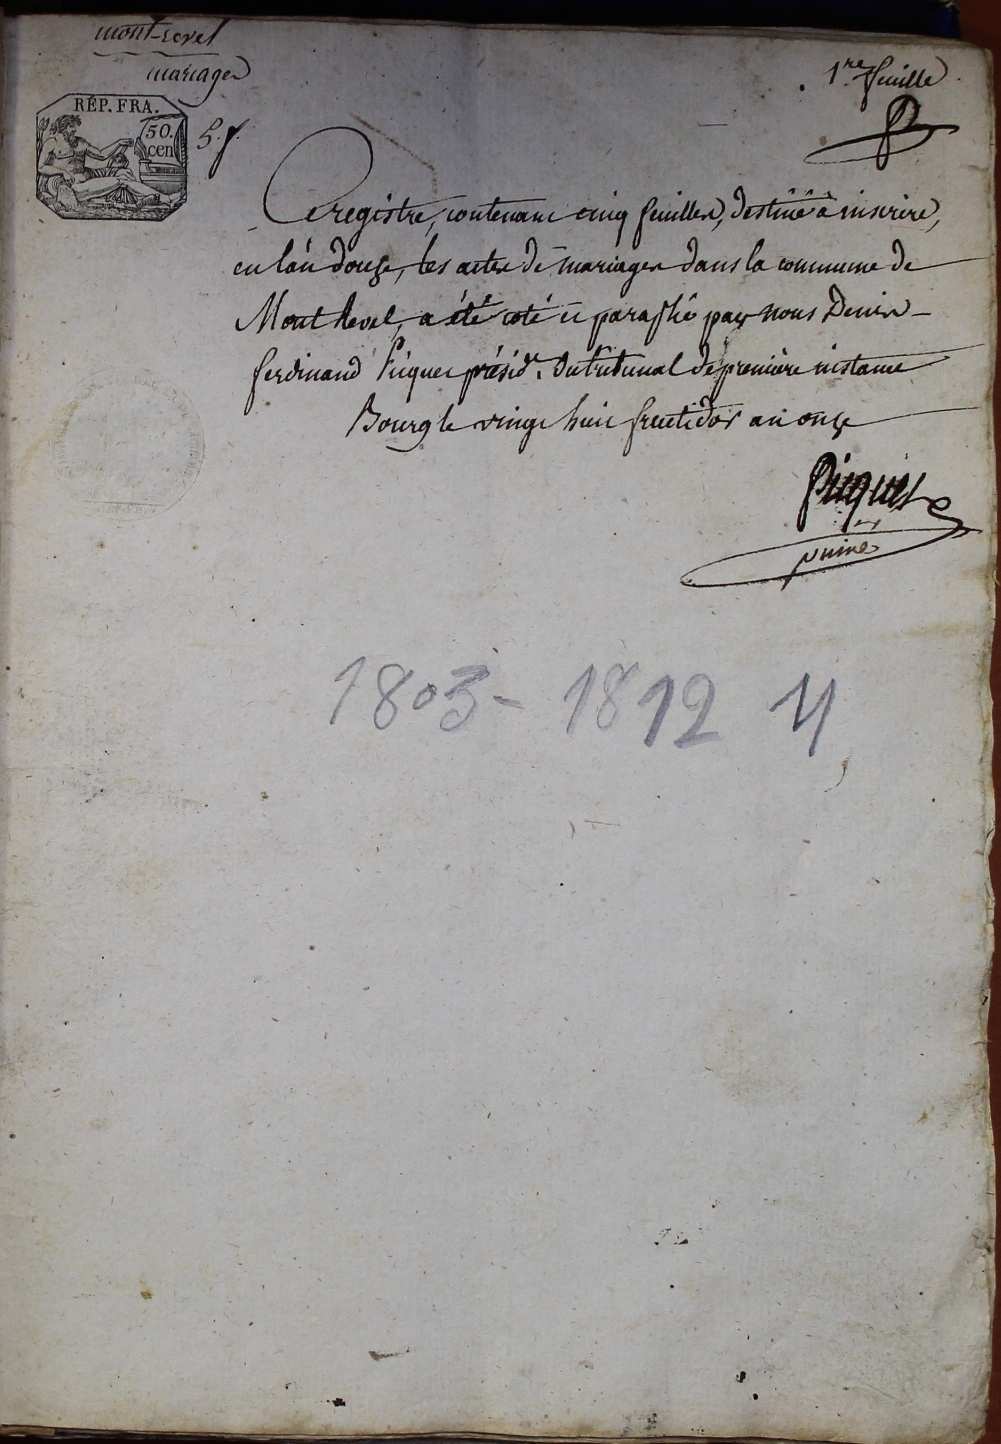 mont-revel
mariages
1re feuille
RÉP. FRA.
50.
cen
5. f.
Ce registre, contenant cinq feuilles, destiné à inscrire,
en l'an douze, les actes de mariages dans la commune de
Mont Revel, a été coté et paraphé par nous Denis
ferdinand Picquet présidt. du tribunal de première instance
Bourg le vingt huit fructidor an onze
Picquet
1803 - 1812 4